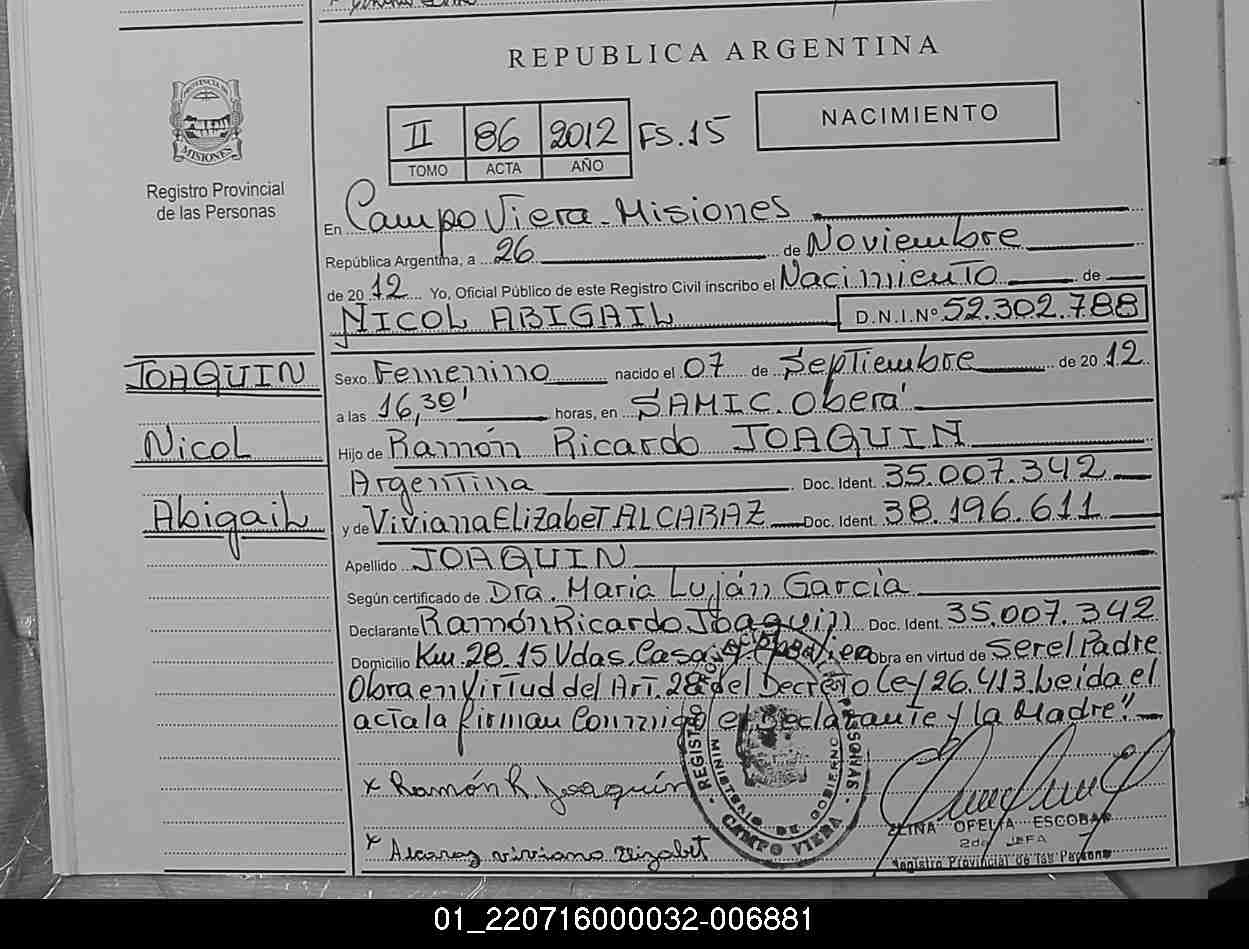 REPUBLICA ARGENTINA
PROVINCIA DE
MISIONES
Registro Provincial
de las Personas
II 86 2012 FS.15
TOMO ACTA AÑO
NACIMIENTO
En Campo Viera - Misiones
República Argentina, a 26 de Noviembre
de 2012 Yo, Oficial Público de este Registro Civil inscribo el Nacimiento de
NICOL ABIGAIL D.N.I.Nº 52.302.788
JOAQUIN
Nicol
Abigail
Sexo Femenino nacido el 07 de Septiembre de 2012
a las 16,30' horas, en SAMIC. Oberá
Hijo de Ramón Ricardo JOAQUIN
Argentina Doc. Ident. 35.007.342
y de Viviana Elizabet ALCARAZ Doc. Ident. 38.196.611
Apellido JOAQUIN
Según certificado de Dra. Maria Luján Garcia
Declarante Ramón Ricardo Joaquin Doc. Ident. 35.007.342
Domicilio Km. 28. 15 Vdas. Casa Viera Obra en virtud de Ser el Padre
Obra en Virtud del Art. 28 del Decreto Ley 26.413. Leida el
acta la firman Conmigo el Declarante y la Madre."
x Ramón R. Joaquín
x Alcaraz viviana Elizabet
REGISTRO PERSONAS
MINISTERIO DE GOBIERNO
CAMPO VIERA
OFELIA ESCOBAR
2da JEFA
Registro Provincial de las Personas
01_220716000032-006881